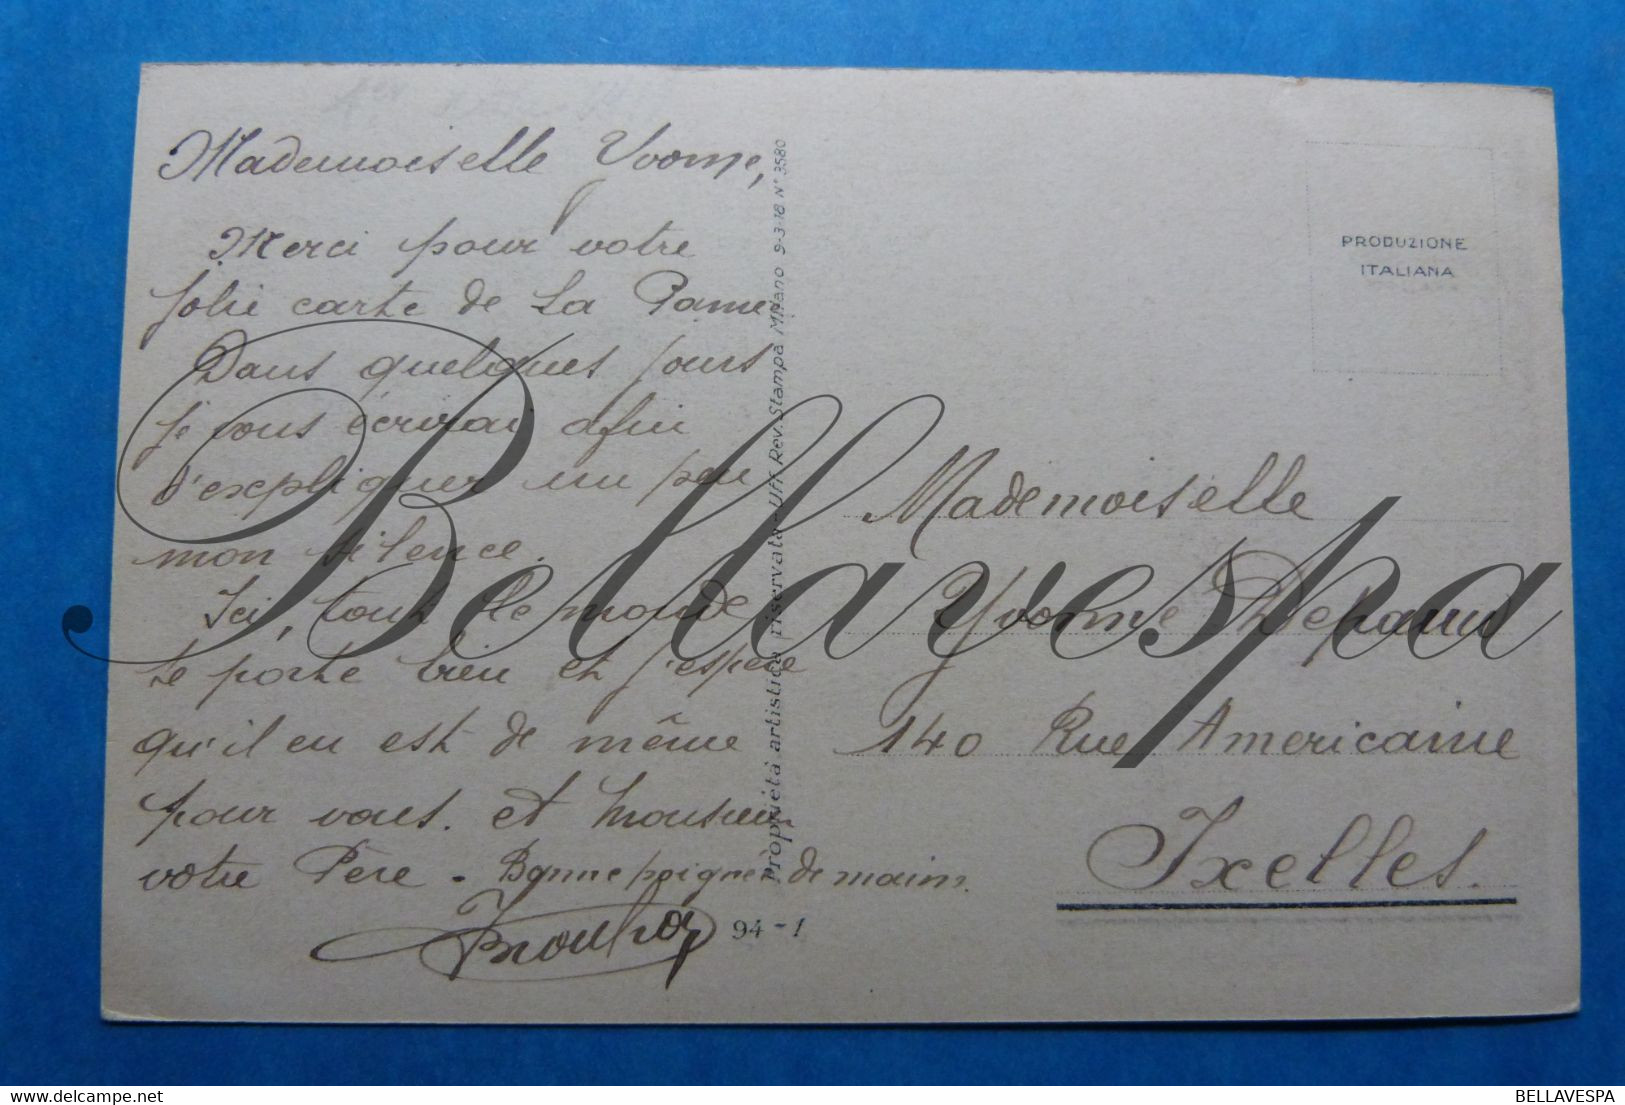 Mademoiselle Yvonne,
Merci pour votre
jolie carte de La Panne
Dans quelques jours
je vous écrirai afin
d'expliquer un peu
mon silence.
Ici, tout le monde
se porte bien et j'espère
qu'il en est de même
pour vous. et Monsieur
votre Père - Bonne poignée de main.
94-1
Proprietà artistica riservata - Uff. Rev. Stampa Milano 9-3-18 N° 3580
PRODUZIONE
ITALIANA
Mademoiselle
Yvonne
140 Rue Americaine
Ixelles.
Bellavespa
BELLAVESPA